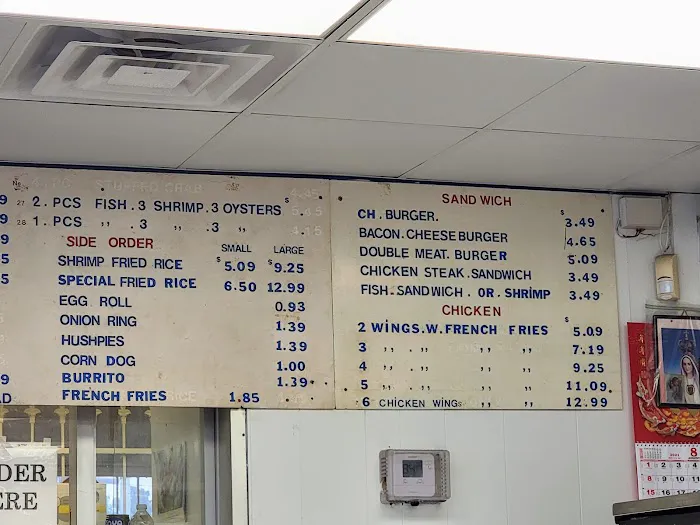 STUFFED CRAB
27 2. PCS FISH. 3 SHRIMP. 3 OYSTERS $
28 1. PCS ,, .3 ,, .3 ,,
SIDE ORDER
SMALL LARGE
SHRIMP FRIED RICE $5.09 $9.25
SPECIAL FRIED RICE 6.50 12.99
EGG ROLL 0.93
ONION RING 1.39
HUSHPIES 1.39
CORN DOG 1.00
BURRITO 1.39
FRENCH FRIES 1.85
SANDWICH
CH. BURGER. $3.49
BACON. CHEESE BURGER 4.65
DOUBLE MEAT. BURGER 5.09
CHICKEN STEAK. SANDWICH 3.49
FISH. SANDWICH. OR. SHRIMP 3.49
CHICKEN
2 WINGS. W. FRENCH FRIES $5.09
3 ,, . ,, ,, ,, 7.19
4 ,, . ,, ,, ,, 9.25
5 ,, . ,, ,, ,, 11.09.
6 CHICKEN WINGS ,, ,, 12.99
DER
ERE
8
1 2 3 4
8 9 10 11
15 16 17